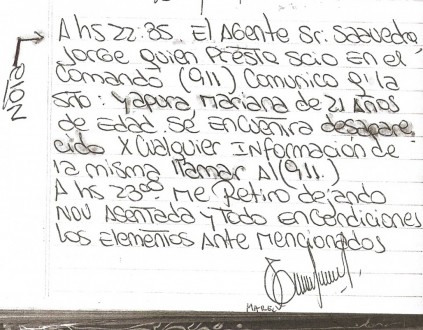 Nota
A hs 22:35. El Agente Sr. Saavedra
Jorge quien Presta Scio En el
Comando (911) Comunico q' la
Srta: Yapura, Mariana de 21 Años
de Edad. Se Encuentra desapare
cida X Cualquier Información de
la misma llamar Al (911.)
A hs 23:00 Me Retiro dejando
Nov Asentada y Todo en Condiciones
los Elementos Ante Mencionados